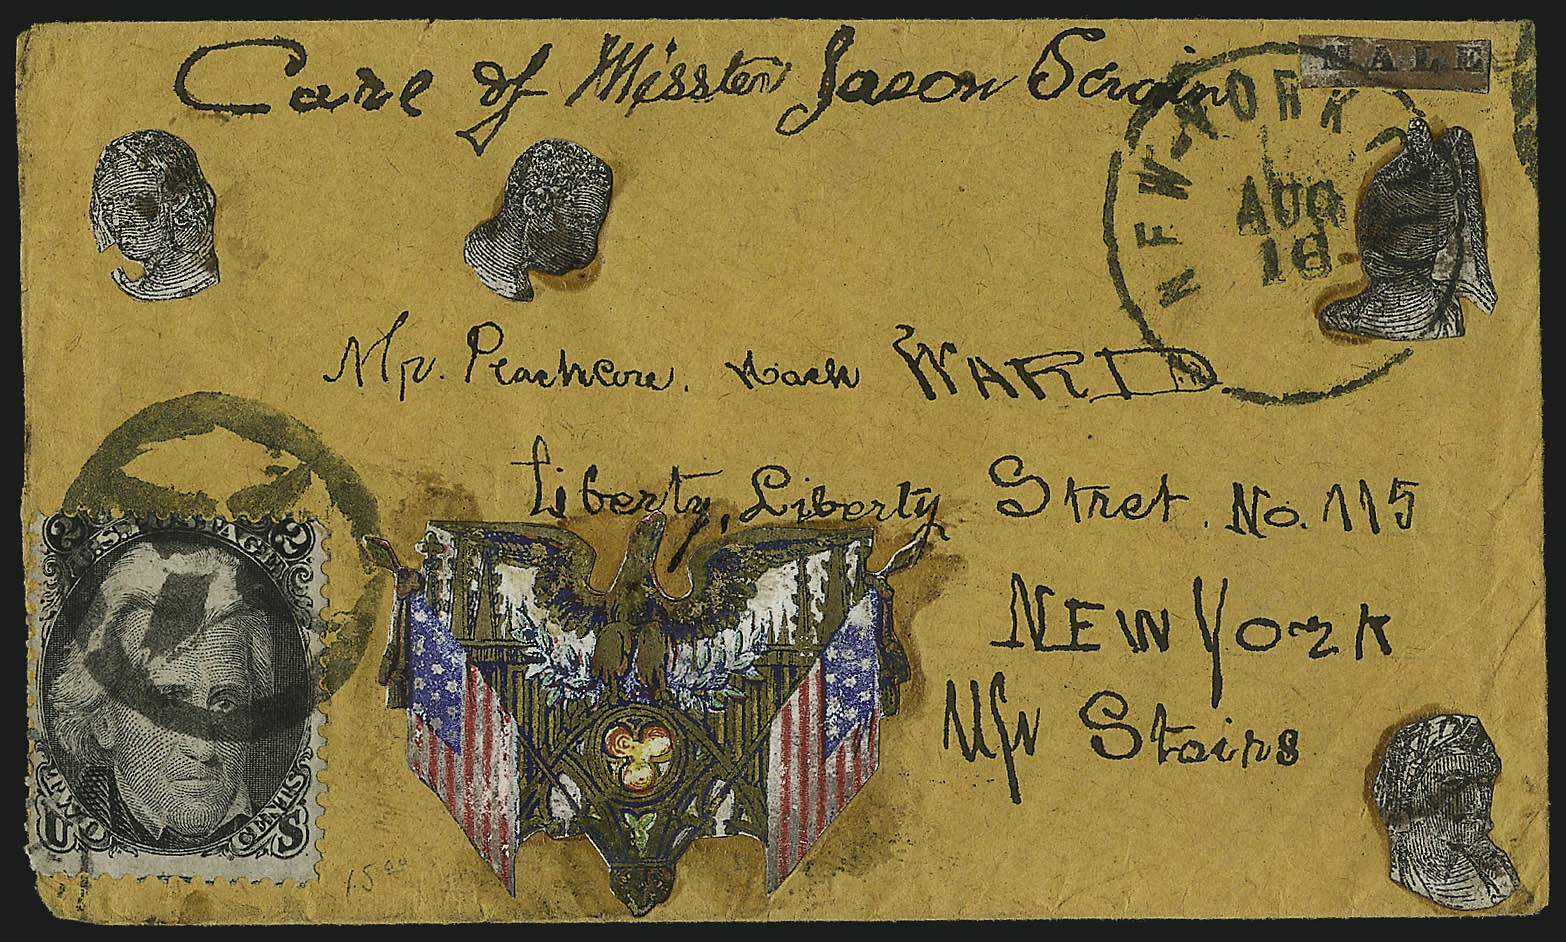 Care of Misster Jason
MALE
NEW-YORK
AUG
16
Mr. WARD
Liberty, Liberty Stret. No. 115
NEW YORK
Up Stairs
U.S. POSTAGE
2 2
TWO CENTS
U S
1500